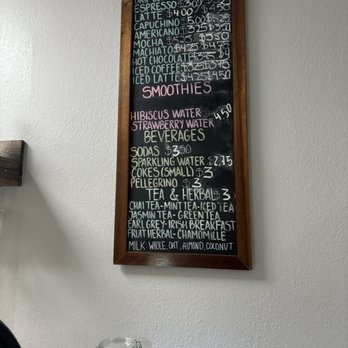 ESPRESSO $3.00
LATTE $4.00
CAPUCHINO
AMERICANO
MOCHA $5.25
MACHIATO $4.25
HOT CHOCOLATE
ICED COFFEE
ICED LATTE $4.25 $4.50
SMOOTHIES
HIBISCUS WATER $4.50
STRAWBERRY WATER
BEVERAGES
SODAS $3.50
SPARKLING WATER $2.75
COKES (SMALL) $3
PELLEGRINO $3
TEA & HERBAL $3
CHAI TEA - MINT TEA - ICED TEA
JASMIN TEA - GREEN TEA
EARL GREY - IRISH BREAKFAST
FRUIT HERBAL - CHAMOMILLE
MILK: WHOLE, OAT, ALMOND, COCONUT